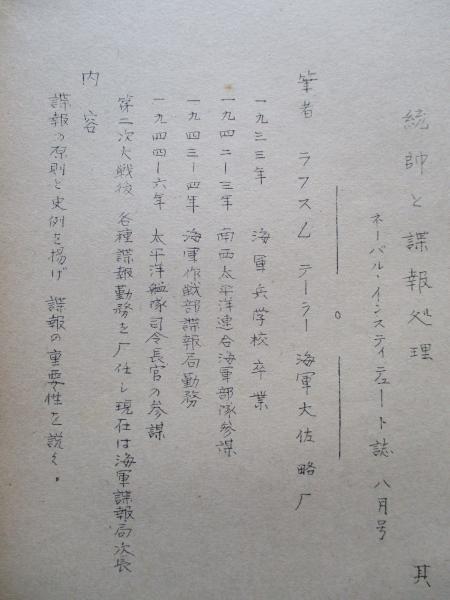 統帥と諜報処理　其
ネーバル・インスティテュート誌　八月号
筆者　ラフスム　テーラー　海軍大佐　略厂
一九三三年　海軍兵学校卒業
一九四二―三年　南西太平洋連合海軍部隊参謀
一九四三―四年　海軍作戦部諜報局勤務
一九四四―六年　太平洋艦隊司令長官の参謀
第二次大戦後　各種諜報勤務を厂任し現在は海軍諜報局次長
内容
諜報の原則と史例を揚げ　諜報の重要性を説く。